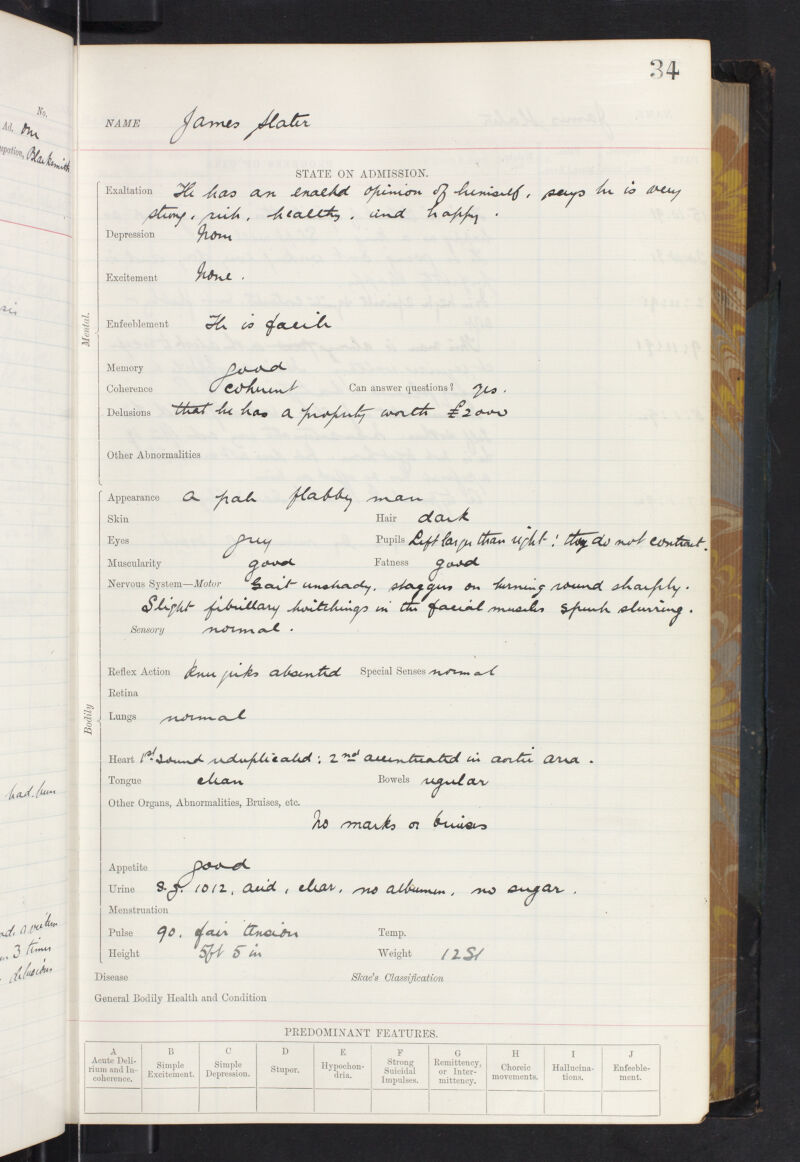 No.
Ad.
upation, Blacksmith
sis
had been
3 times
delusions
34
NAME James Slater
STATE ON ADMISSION.
Mental.
Exaltation He has an exalted opinion of himself, says he is very
strong, rich, healthy, and happy.
Depression None
Excitement None.
Enfeeblement He is facile
Memory good
Coherence coherent Can answer questions? yes.
Delusions that he has a property worth £2000
Other Abnormalities
Bodily
Appearance a pale flabby man
Skin Hair dark
Eyes grey Pupils Left larger than right: they do not contract.
Muscularity good Fatness good
Nervous System—Motor Gait unsteady, staggers on turning round sharply.
Slight fibrillary twitchings in the facial muscles Speech slurring.
Sensory normal.
Reflex Action Knee jerks absented Special Senses normal
Retina
Lungs normal
Heart 1st. Sound reduplicated: 2nd accentuated in aortic area.
Tongue clean Bowels regular
Other Organs, Abnormalities, Bruises, etc.
No marks or bruises
Appetite good
Urine S.g. 1012, acid, clear, no albumen, no sugar.
Menstruation
Pulse 90. fair tension Temp.
Height 5ft 5 in Weight 12 St
Disease Skae's Classification
General Bodily Health and Condition
PREDOMINANT FEATURES.
A B C D E F G H I J
Acute Deli-
rium and In-
coherence.
Simple
Excitement.
Simple
Depression.
Stupor.
Hypochon-
dria.
Strong
Suicidal
Impulses.
Remittency,
or Inter-
mittency.
Choreic
movements.
Hallucina-
tions.
Enfeeble-
ment.